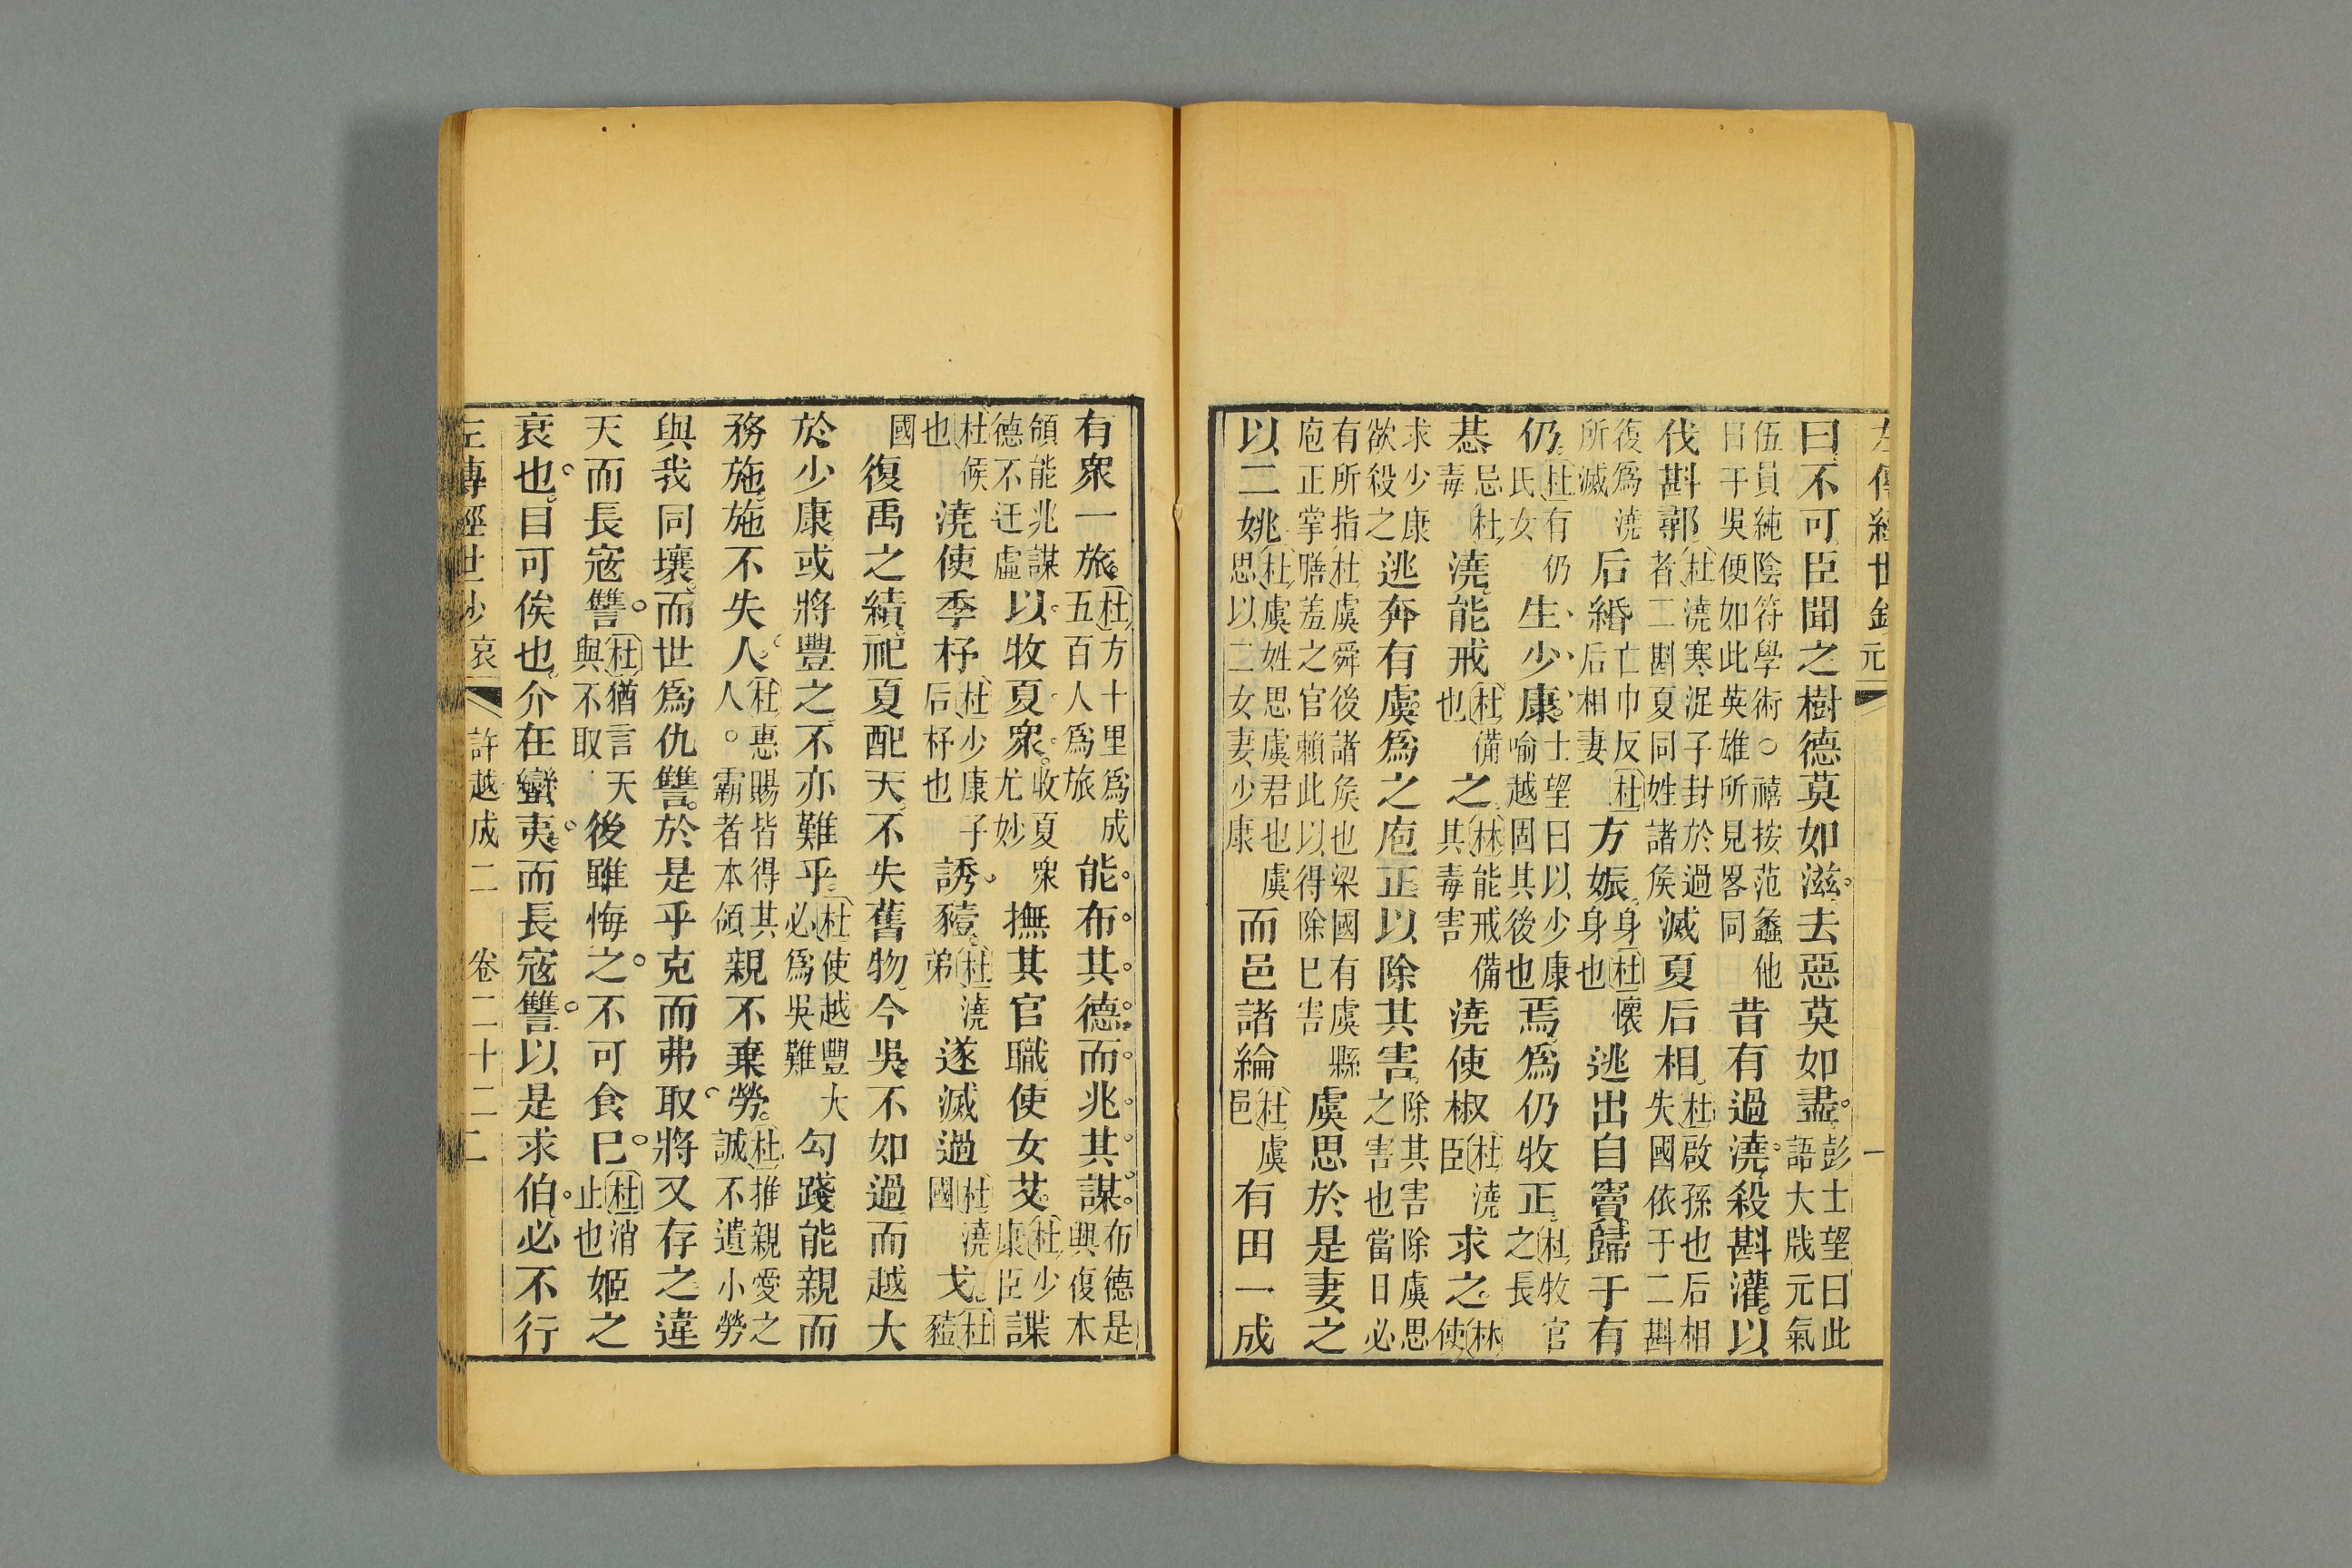 左傳經世鈔 元 一
曰不可臣聞之樹德莫如滋去惡莫如盡彭士望曰此語大戕元氣
伍員純陰符學術○禧按范蠡他日于吳便如此英雄所見畧同昔有過澆殺斟灌以
伐斟鄩杜澆寒浞子封於過者二斟夏同姓諸矦滅夏后相杜啟孫也后相失國依于二斟
復爲澆所滅后緡亡巾反杜后相妻方娠身杜懷身也逃出自竇歸于有
仍杜有仍氏女生少康士望曰以少康喻越固其後也焉爲仍牧正杜牧官之長
惎忌杜毒澆能戒杜備也之林能戒備其毒害澆使椒杜澆臣求之林使
求少康欲殺之逃奔有虞爲之庖正以除其害除其害除虞思之害也當日必
有所指杜虞舜後諸矦也梁國有虞縣庖正掌膳羞之官賴此以得除巳害虞思於是妻之
以二姚杜虞姓思虞君也虞思以二女妻少康而邑諸綸杜虞邑有田一成
有衆一旅杜方十里爲成五百人爲旅能布其德而兆其謀布德是興復本
領能兆謀德不迂虛以收夏衆收夏衆尤妙撫其官職使女艾杜少康臣諜
杜候也澆使季杼杜少康子后杼也誘豷杜澆弟遂滅過杜澆國戈杜豷
國復禹之績祀夏配天不失舊物今吳不如過而越大
於少康或將豐之不亦難乎杜使越豐大必爲吳難勾踐能親而
務施施不失人杜惠賜皆得其人。霸者本領親不棄勞杜推親愛之誠不遺小勞
與我同壤而世爲仇讐於是乎克而弗取將又存之違
天而長寇讐杜猶言天與不取後雖悔之不可食巳杜消止也姬之
衰也日可俟也介在蠻夷而長寇讐以是求伯必不行
左傳經世鈔 哀 許越成二 卷二十二 二